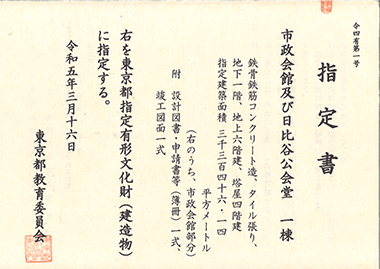 令四有第一号
指定書
市政会館及び日比谷公会堂　一棟
鉄骨鉄筋コンクリート造、タイル張り、
地下一階、地上六階建、塔屋四階建
指定建築面積　三千三百四十六・一四
平方メートル
（右のうち、市政会館部分）
附　設計図書・申請書等（簿冊）一式、
竣工図面一式
右を東京都指定有形文化財（建造物）
に指定する。
令和五年三月十六日
東京都教育委員会